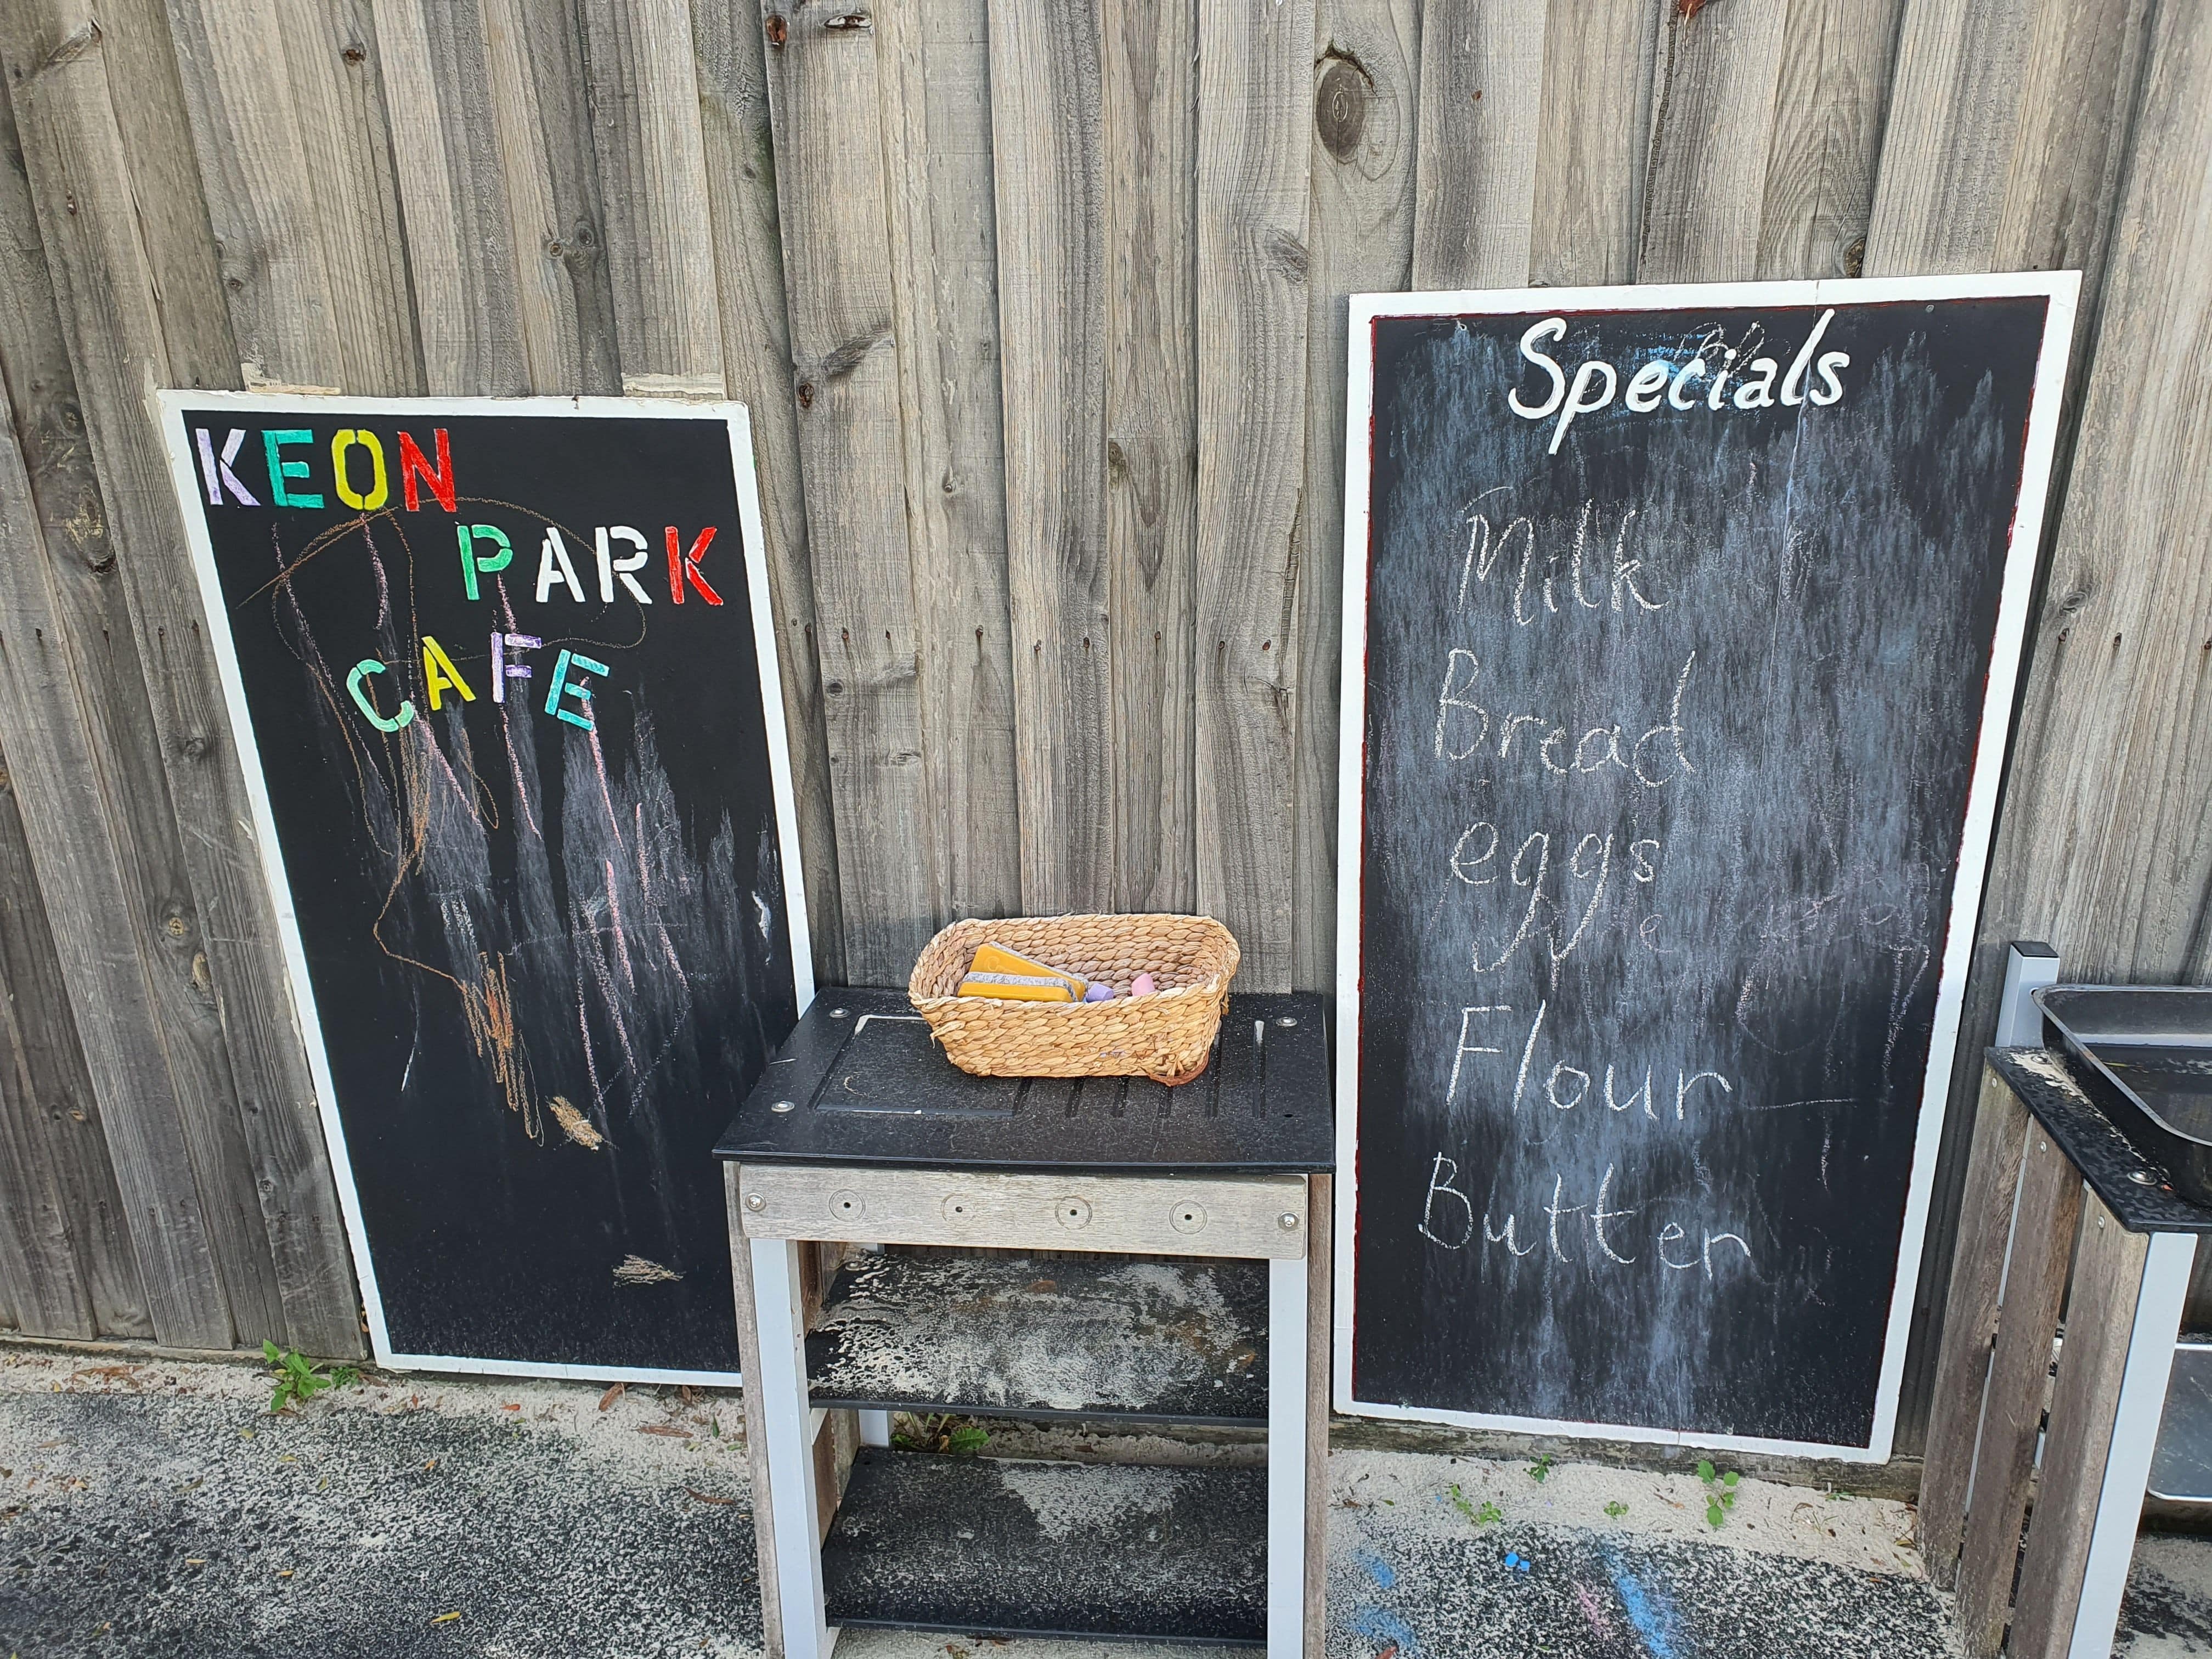 KEON
PARK
CAFE
Specials
Milk
Bread
eggs
Flour
Butter